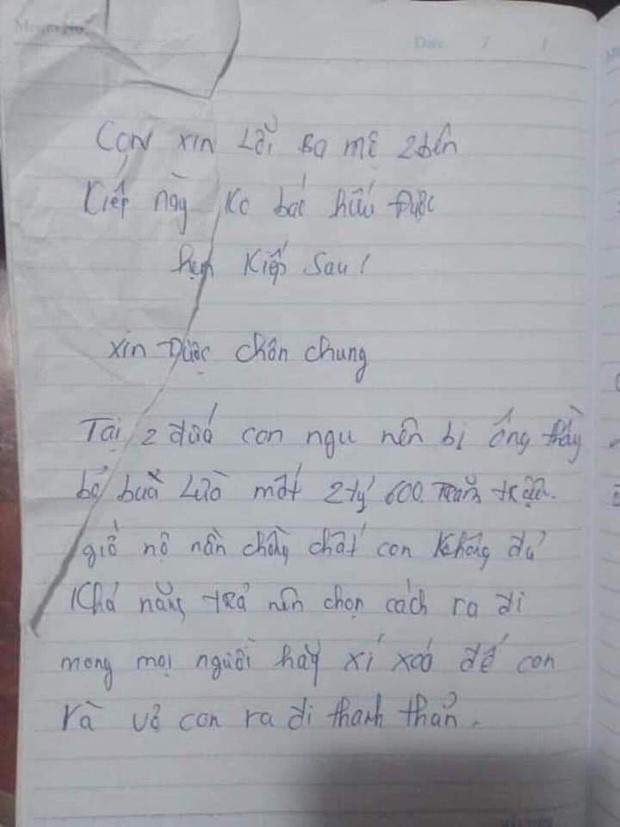 Con xin Lỗi Ba mẹ 2 bên
Kiếp này Ko báo hiếu Được
hẹn Kiếp Sau!
xin Được chôn chung
Tại 2 đứa con ngu nên bị ông thầy
bỏ buà Lừa mất 2 tỷ 600 Trăm triệu.
giờ nợ nần chồng chất con không đủ
Khả năng trả nên chọn cách ra đi
mong mọi người hãy xí xoá để con
và vợ con ra đi thanh thản.